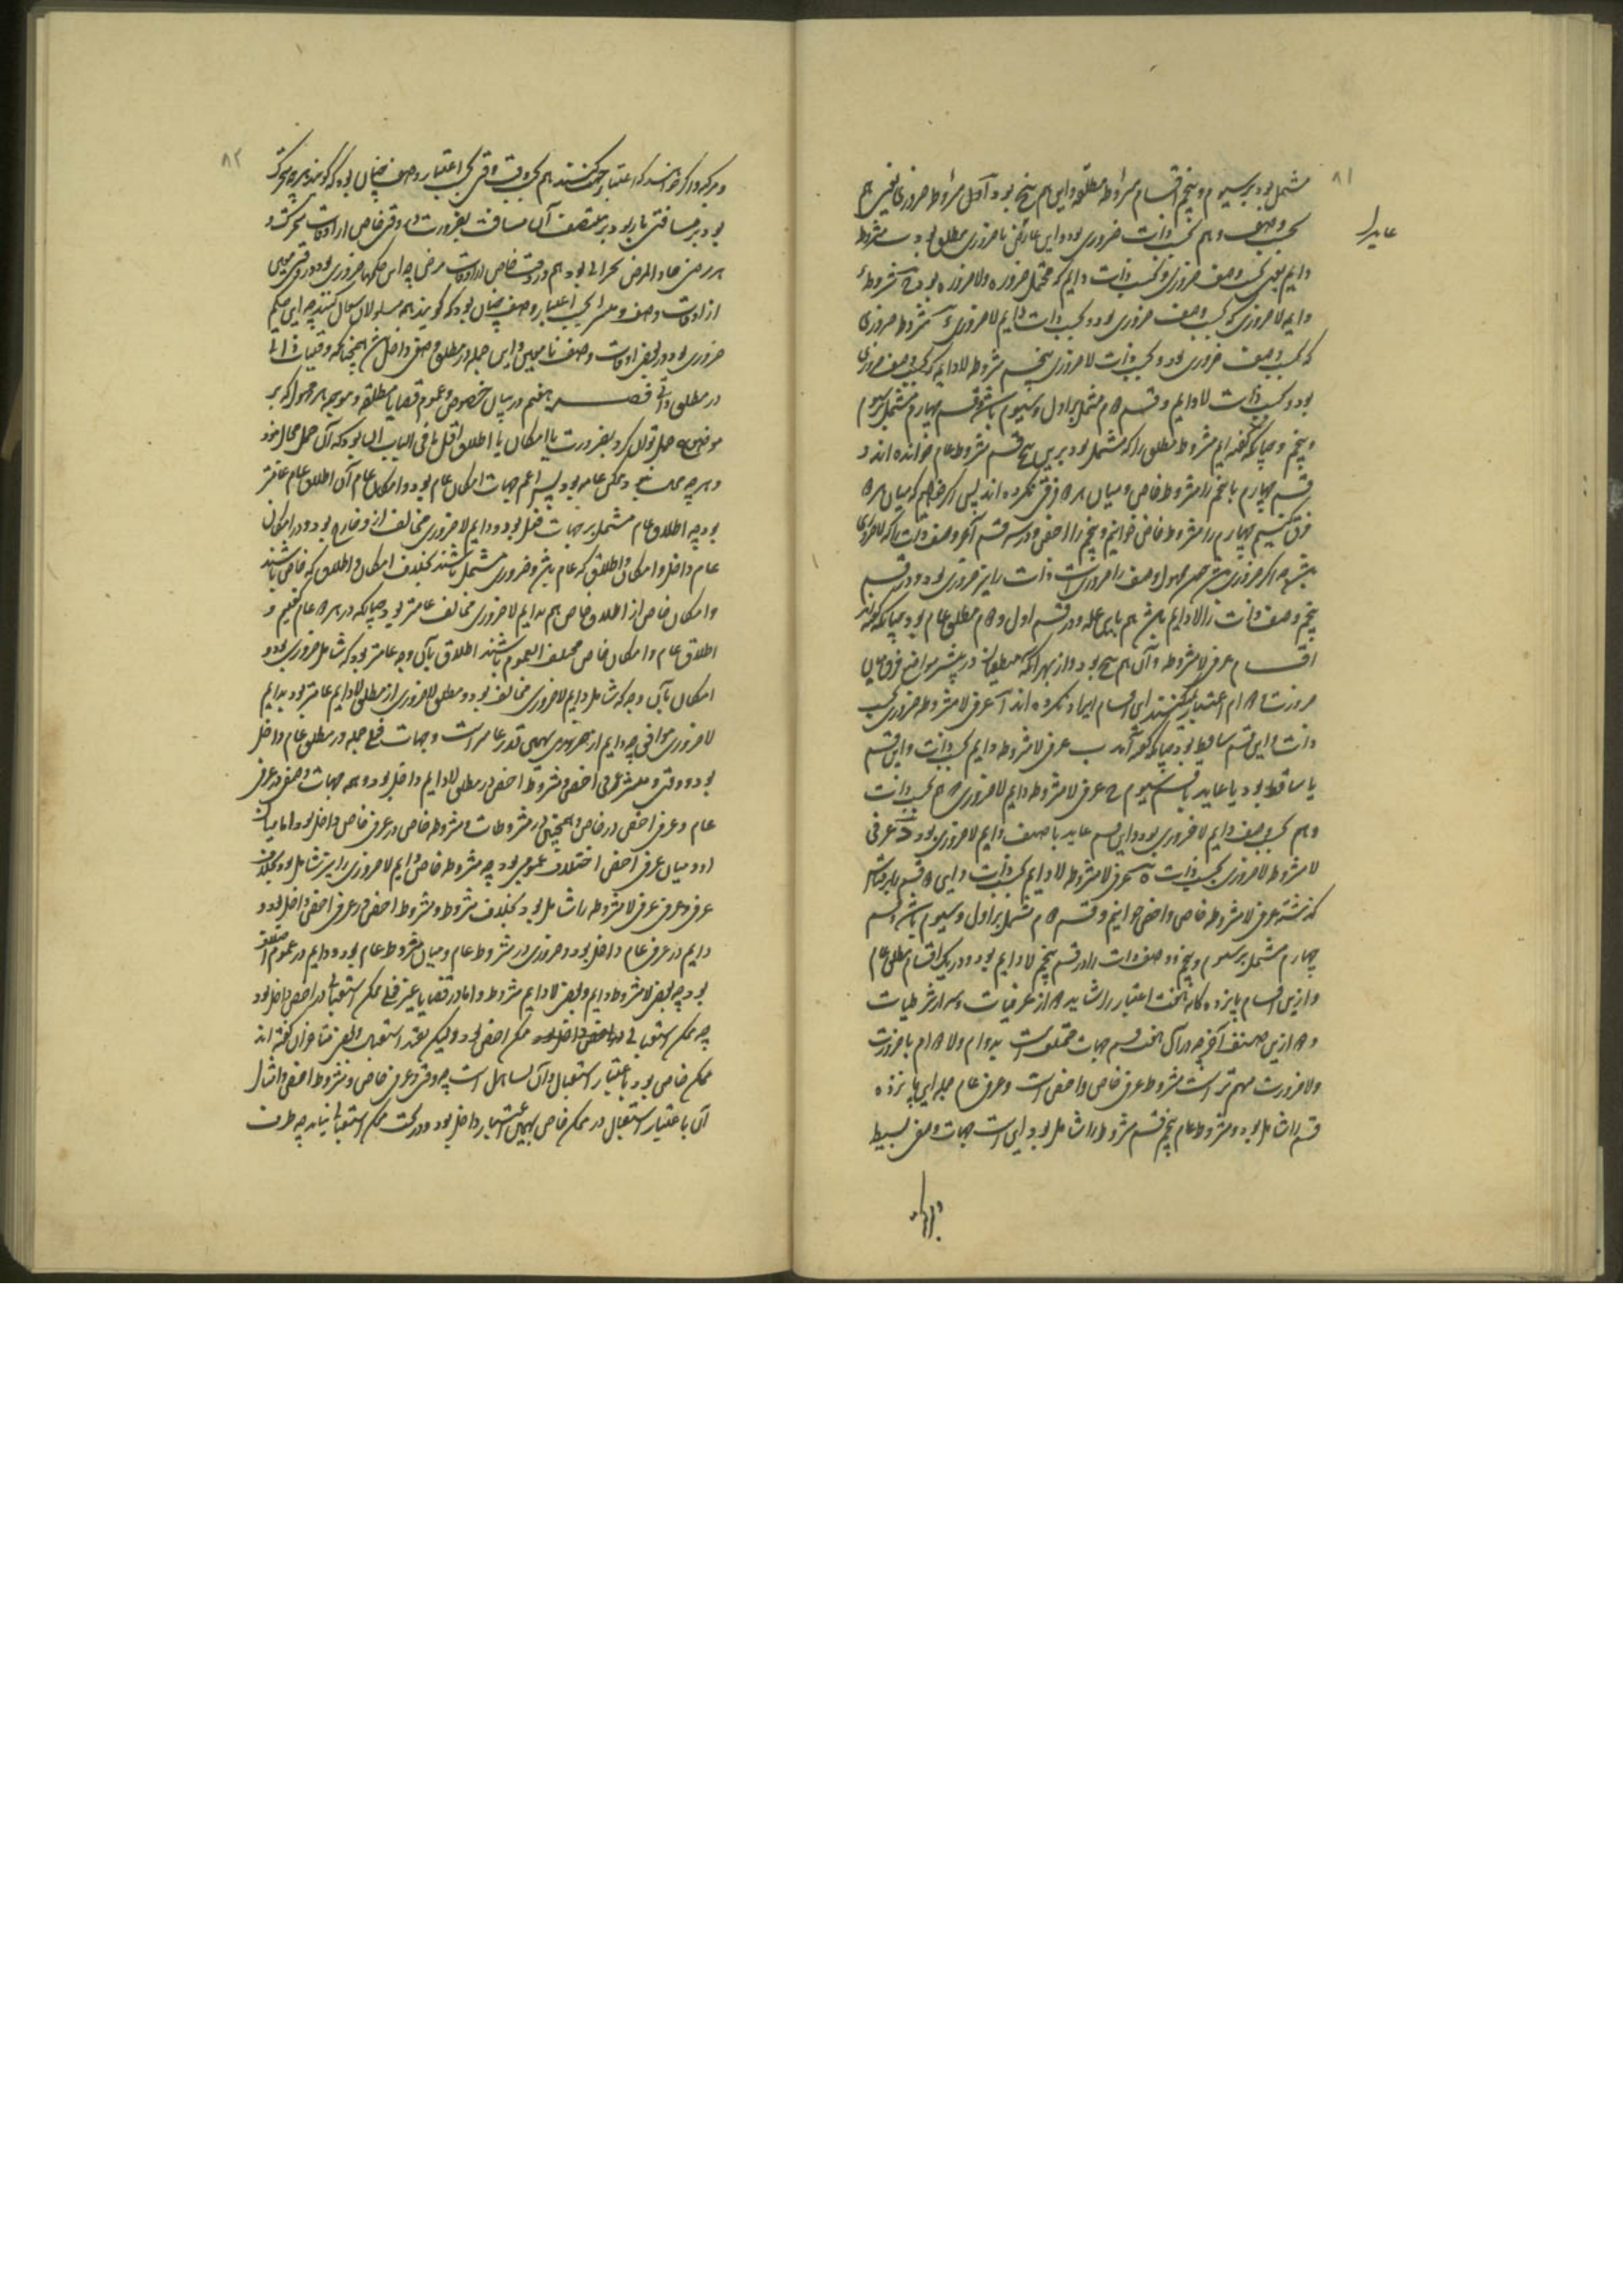 ۸۱
مشتمل بود بر سیوم و پنجم اقسام مشروط مطلقه و این هم پنج بود آ اول مشروط ضروری یعنی هم
عاید را
بحسب وصف و هم بحسب ذات ضروری بود و این عاید با ضروری مطلق بود ب مشروط
دایم یعنی بحسب وصف ضروری و بحسب ذات دایم که محتمل ضروره و لا ضروره بود ج مشروط
دایم لا ضروری که بحسب وصف ضروری بود و بحسب ذات دایم لا ضروری مشروط ضروری
که بحسب وصف ضروری بود و بحسب ذات لا ضروری پنجم مشروط لا دایم که بحسب وصف ضروری
بود و بحسب ذات لا دایم و قسم مشتمل بر اول و سیوم باشد و قسم چهارم مشتمل بر سیوم
و پنجم و چنانکه گفته ایم مشروط مطلق را که مشتمل بود برین پنج قسم مشروط عام خوانده اند و
قسم چهارم یا پنجم را مشروط خاص و میان هر فرق نکرده اند پس اگر خواهیم که میان هر
فرق کنیم چهارم را مشروط خاص خوانیم و پنجم را اخص و در سه قسم آخر وصف ذات را که لا ضروری
نباشد چه اگر ضروری باشد محمول وصف را ضروریست ذات را نیز ضروری بود و در قسم
پنجم وصف ذات را لا دایم باشد هم باین علت و در قسم اول و مطلق عام بود چنانکه گفته اند
اقسام عرفی لا مشروط و آن هم پنج بود و از بهر آنکه منطقیان در بیشتر مواضع فرق میان
ضرورت و دوام اعتبار نمیکنند این اقسام ایراد نکرده اند آ عرفی لا مشروط ضروری بحسب
ذات و این قسم ساقط بود چنانکه گفته آمد ب عرفی لا مشروط دایم بحسب ذات و این قسم
یا ساقط بود یا عاید با قسم سیوم ج عرفی لا مشروط دایم لا ضروری هم بحسب ذات
و هم بحسب وصف دایم لا ضروری بود و این قسم عاید با صنف دایم لا ضروری بود د عرفی
لا مشروط لا ضروری بحسب ذات ه عرفی لا مشروط لا دایم بحسب ذات و این قسم را بر قیاس
گذشته عرفی لا مشروط خاص و اخص خوانیم و قسم مشتمل بر اول و سیوم باشد و قسم
چهارم مشتمل بر سیوم و پنجم و وصف ذات را در قسم پنجم لا دایم بود و در دیگر اقسام مطلق عام
و ازین اقسام پانزده گانه هشت اعتبار را شاید از عرفیات و سه از شرطیات
و ازین صنف آخر چه در آن هشت قسم جهات مختلف است بدوام و لا دوام یا ضرورت
و لا ضرورت مهم تر است مشروط و عرفی خاص و اخص است و عرفی عام جمله این پانزده
قسم را شامل بود و مشروط عام پنج قسم مشروط را شامل بود این است جهات وصفی بسیط
۸۲
و مرکب و اگر خواهند که اعتبار حکم کنند هم بحسب وقت وقتی بحسب اعتبار وصف چنان بود که گویند هر چه متحرک
بود بر مسافتی باید بود بر منتصف آن مسافت بضرورت در وقتی خاص از اوقات تحرکش و
هر مریض حاد المرض بحرانی بود هم در وقت خاص از اوقات مرض چه این حکمها ضروری بود در وقتی معین
از اوقات وصف و منتشر بحسب اعتبار وصف چنان بود که گویند همه مسلولان سعال کنند چه این حکم
ضروری بود در بعضی اوقات وصف نامعین و این جمله در مطلق وصفی داخل باشد همچنانکه وقتیات ذاتی
در مطلق ذاتی فصل هفتم در بیان خصوص و عموم قضایا مطلقه و موجهه هر محمول که بر
موضوعی حمل توان کرد بضرورت یا امکان یا اطلاق اقل ما فی الباب آن بود که آن حمل محال نبود
و هر چه محال نبود ممکن عام بود پس اعم جهات امکان عام بود و امکان عام از اطلاق عام عامتر
بود چه اطلاق عام مشتمل بر جهات فعلی بود و دایم لا ضروری مخالف از و خارج بود و در امکان
عام داخل و امکان و اطلاق که عام باشد و ضروری مشتمل باشند بخلاف امکان و اطلاق که خاص باشند
و امکان خاص از اطلاق خاص هم بدایم لا ضروری مخالف عامتر بود چنانکه در هر عام گفتیم و
اطلاق عام و امکان خاص مختلف العموم باشند اطلاق بآن وجه عامتر بود که شامل ضروری بود و
امکان بآن وجه که شامل دایم لا ضروری مخالف بود و مطلق لا ضروری از مطلق لا دایم عامتر بود بدایم
لا ضروری موافق چه دایم از بهمین قدر عامتر است و جهات فعلی جمله در مطلق عام داخل
بود و وقتی و منتشر و عرفی اخص و مشروط اخص در مطلق لا دایم داخل بود و همه جهات وصفی در عرفی
عام و عرفی اخص در خاص و همچنین در مشروطات و مشروط خاص در عرفی خاص داخل بود اما میان
او و میان عرفی اخص اختلاف عمومی بود چه مشروط خاص دایم لا ضروری را نیز شامل بود بخلاف
عرفی و عرفی عرفی لا مشروط را شامل بود بخلاف مشروط و مشروط اخص در عرفی اخص داخل بود و
دایم در عرفی عام داخل بود و ضروری در مشروط عام و میان مشروط عام بود و دایم در عموم اختلاف
بود چه بعضی لا مشروط دایم و بعضی لا دایم مشروط و اما در قضایا غیر فعلی ممکن استقبالی در اخص داخل بود
چه ممکن استقبالی ممکن اخص بود و لیکن بقید استقبال و بعضی متاخران گفته اند
ممکن خاص بود باعتبار استقبال و آن تساهل است چه وقتی و عرفی خاص و مشروط اخص و امثال
آن باعتبار استقبال در ممکن خاص بهمین اعتبار داخل بود و در تحت ممکن استقبالی نیاید چه طرف